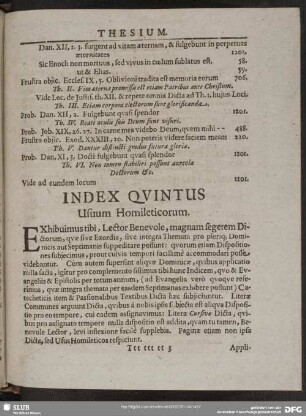 THESIUM.
Dan. XII, 2. 3. surgent ad vitam æternam, & fulgebunt in perpetuas
æternitates 1201.
Sic Enoch non mortuus, sed vivus in cœlum sublatus est. 58.
ut & Elias. 59.
Frustra objic. Eccles. IX, 5. Oblivioni tradita est memoria eorum 706.
Th. II. Vita æterna promissa est etiam Patribus ante Christum.
Vide Loc. de Justif. th. XII. & repete omnia Dicta ad Th. 1. hujus Loci.
Th. III. Etiam corpora electorum sunt glorificanda.
Prob. Dan. XII, 2. Fulgebunt quasi splendor 1201.
Th. IV. Beati oculis suis Deum sunt visuri.
Prob. Job. XIX, 26. 27. In carne mea videbo Deum, quem mihi -- 438.
Frustra objic. Exod. XXXIII, 20. Non poteris videre faciem meam 220.
Th. V. Dantur distincti gradus futura gloria.
Prob. Dan. XI, 3. Docti fulgebunt quasi splendor 1201.
Th. VI. Non tamen stabiliri possunt aureola
Doctorum &c.
Vide ad eundem locum 1201.
INDEX QVINTUS
Usuum Homileticorum.
EXhibuimus tibi, Lector Benevole, magnam segetem Di-
ctorum, quæ sive Exordia, sive integra Themata pro plerisq; Domi-
nicis aut Septimanis suppeditare possunt: quorum etiam Dispositio-
nes subjecimus, prout cuivis tempori facillimè accommodari posse
videbantur. Cum autem supersint aliquæ Dominicæ, quibus applicatio
nulla facta, igitur pro complemento sistimus tibi hunc Indicem, quo & Ev-
angelis & Epistolis per totum annum, (ad Evangelia verò quoque refe-
rimus, quæ integra themata per easdem Septimanas exhibere possunt) Ca-
techeticis item & Passionalibus Textibus Dicta hæc subjunximus. Litera
Communes arguunt Dicta, quibus à nobis ipsis subjecta est aliqua Disposi-
tio pro eo tempore, cui eadem assignavimus: Litera Cursivæ Dicta, qui-
bus pro assignato tempore nulla dispositio est addita, quam tu tamen, Be-
nevole Lector, levi inflexione facilè supplebis. Paginæ etiam non ipsa
Dicta, sed Usus Homileticos respiciunt.
Ttt ttt tt 3 Appli-